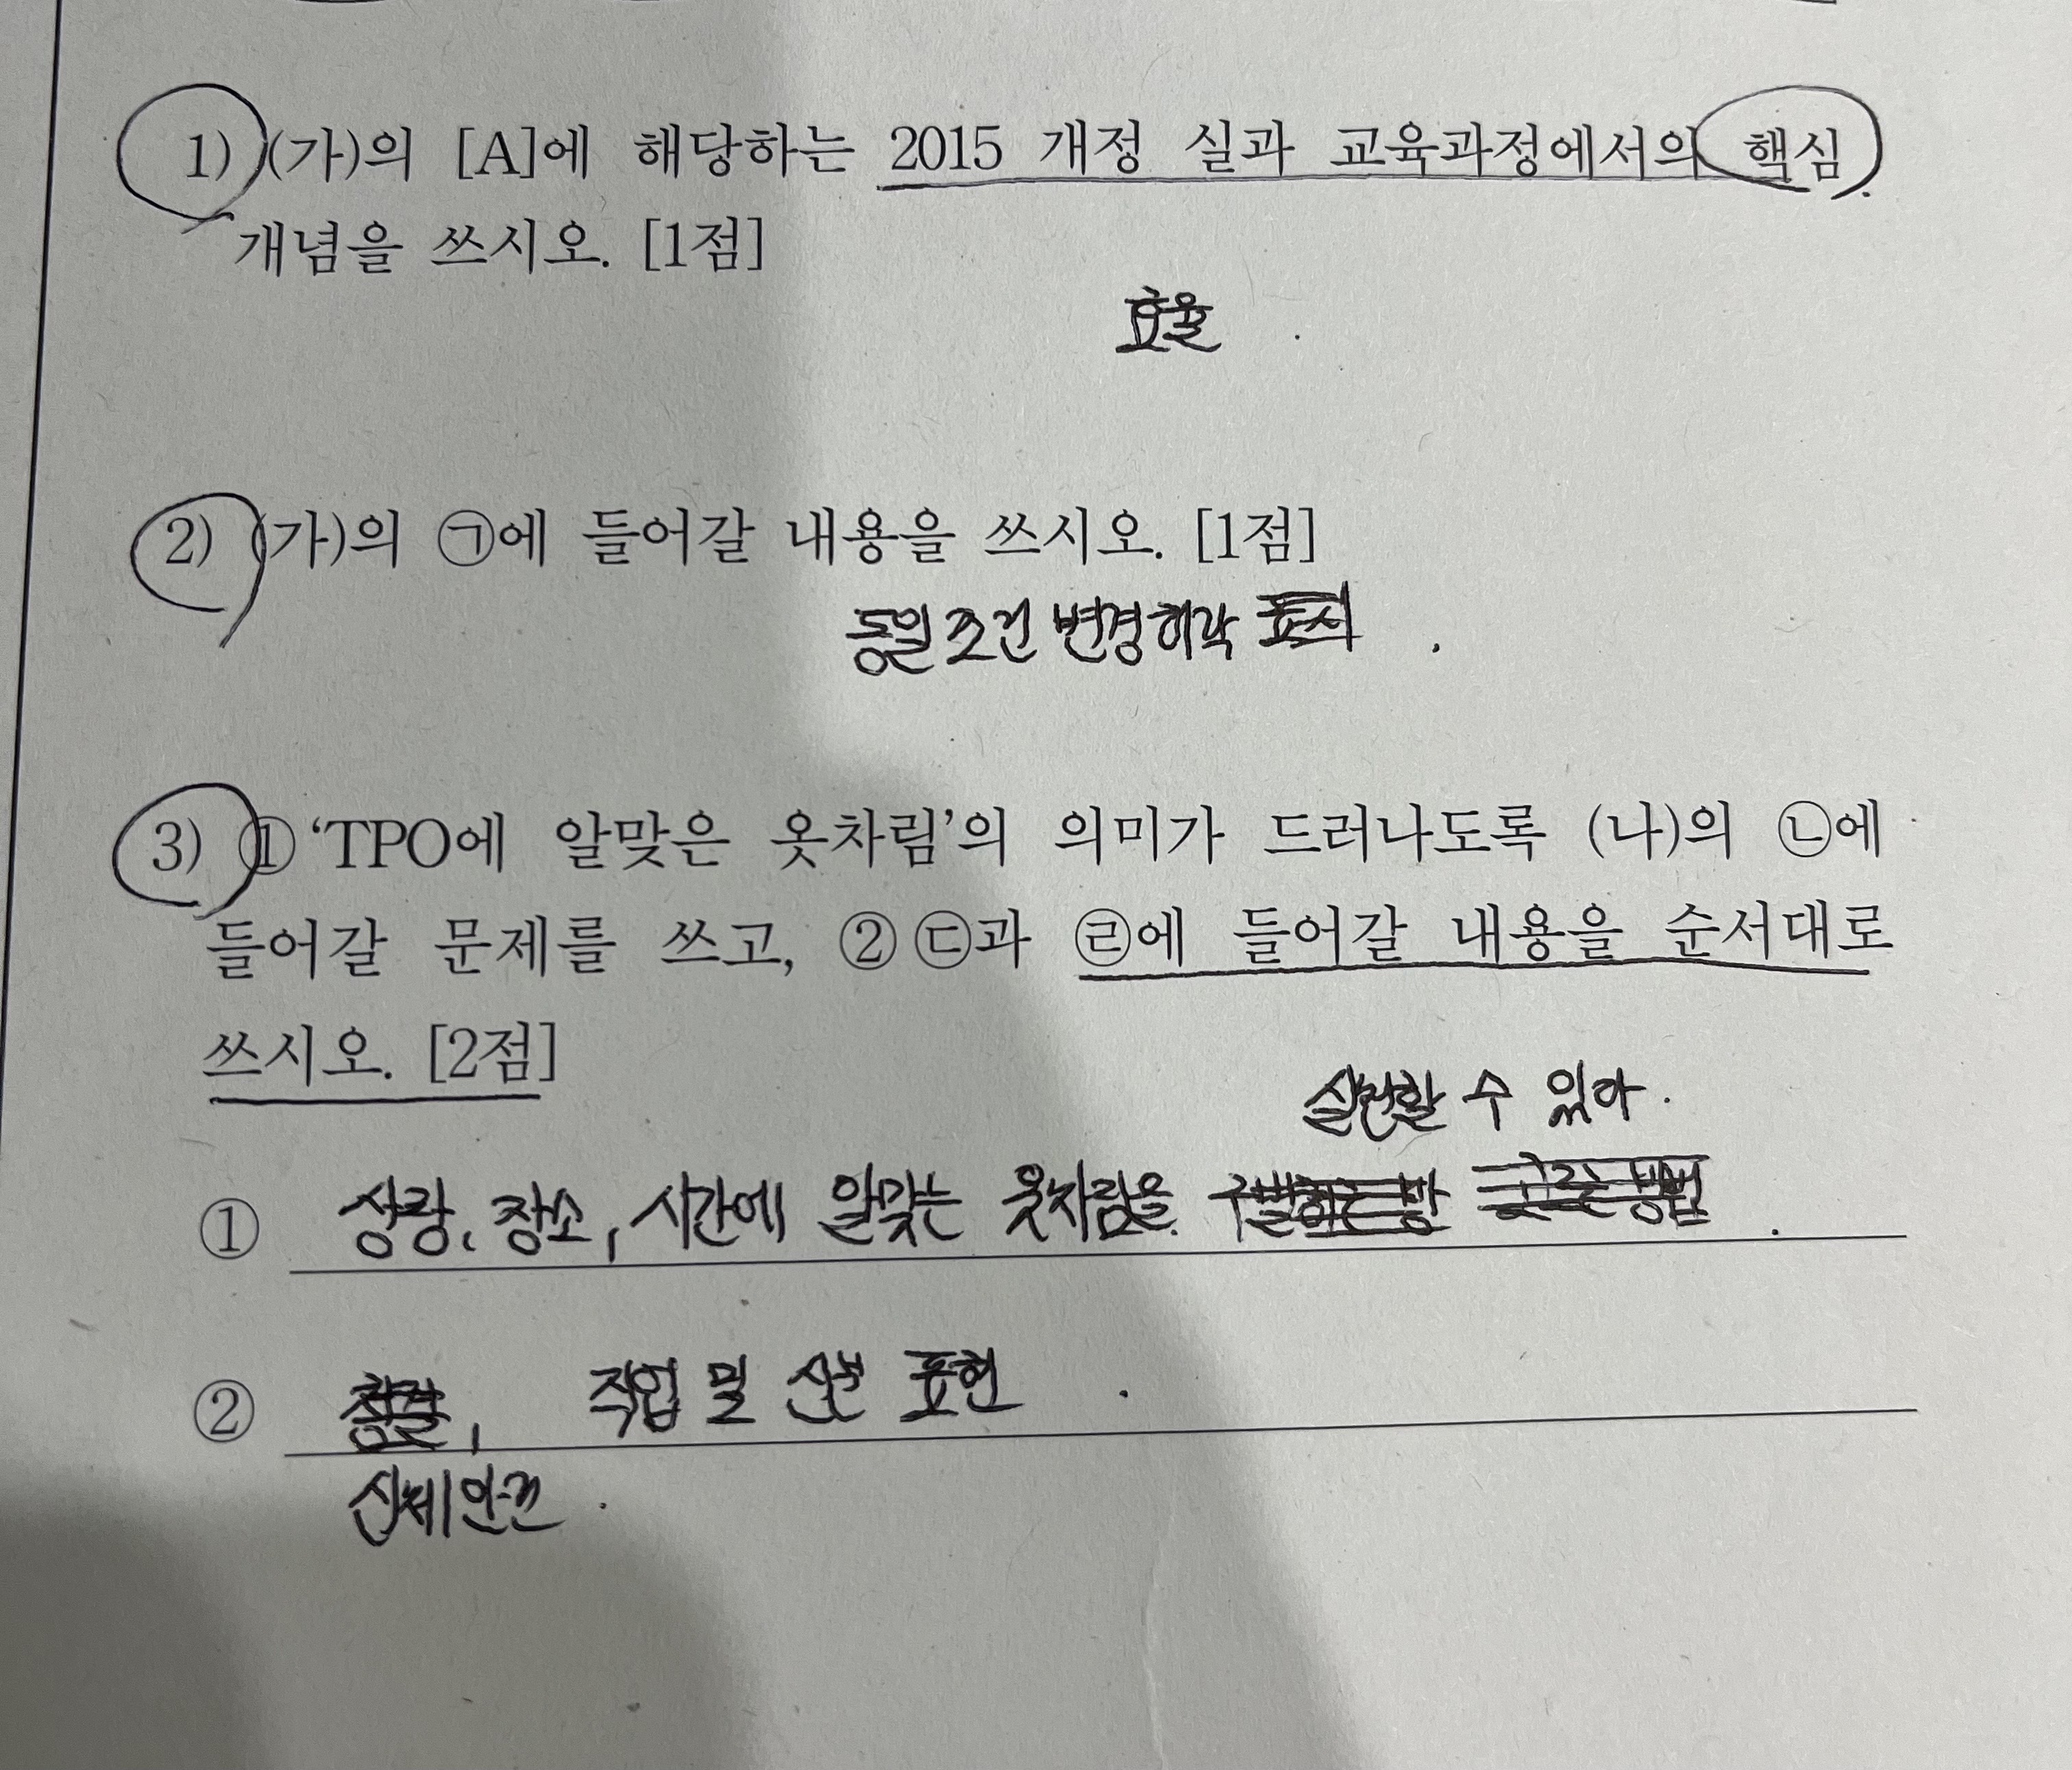 1) (가)의 [A]에 해당하는 2015 개정 실과 교육과정에서의 핵심
개념을 쓰시오. [1점]
효율
2) (가)의 ㉠에 들어갈 내용을 쓰시오. [1점]
동일 조건 변경허락
3) ① ‘TPO에 알맞은 옷차림’의 의미가 드러나도록 (나)의 ㉡에
들어갈 문제를 쓰고, ② ㉢과 ㉣에 들어갈 내용을 순서대로
쓰시오. [2점]
실천할 수 있다.
① 상황, 장소, 시간에 알맞는 옷차림을
② , 직업 및 신분 표현
신체 안전